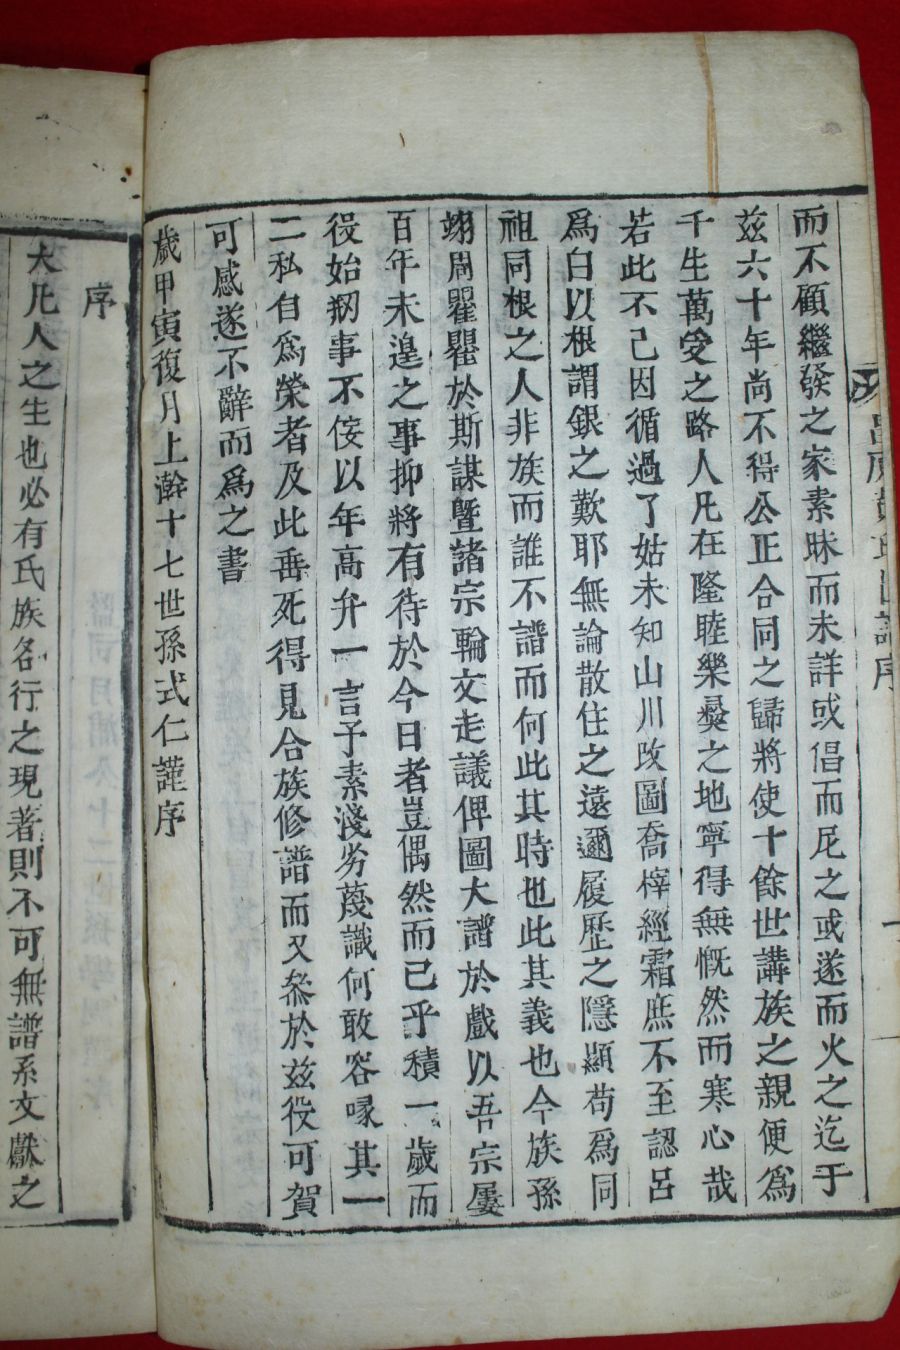 昌原黃氏世譜序
而不顧繼發之家素昧而未詳或倡而尼之或遂而火之迄于
玆六十年尚不得公正合同之歸將使十餘世講族之親便爲
千生萬受之略人凡在隆睦樂彛之地寧得無慨然而寒心哉
若此不已因循過了姑未知山川改圖喬梓經霜庶不至認呂
爲白以根謂銀之歎耶無論散住之遠邇履歷之隱顯苟爲同
祖同根之人非族而誰不譜而何此其時也此其義也今族孫
翊周瞿瞿於斯謀曁諸宗輪文走議俾圖大譜於戲以吾宗屢
百年未遑之事抑將有待於今日者豈偶然而已乎積一歲而
役始刱事不侫以年高弁一言予素淺劣蔑識何敢容喙其一
二私自爲榮者及此垂死得見合族修譜而又叅於玆役可賀
可感遂不辭而爲之書
歲甲寅復月上澣十七世孫式仁謹序
序
大凡人之生也必有氏族各行之現著則不可無譜系文獻之